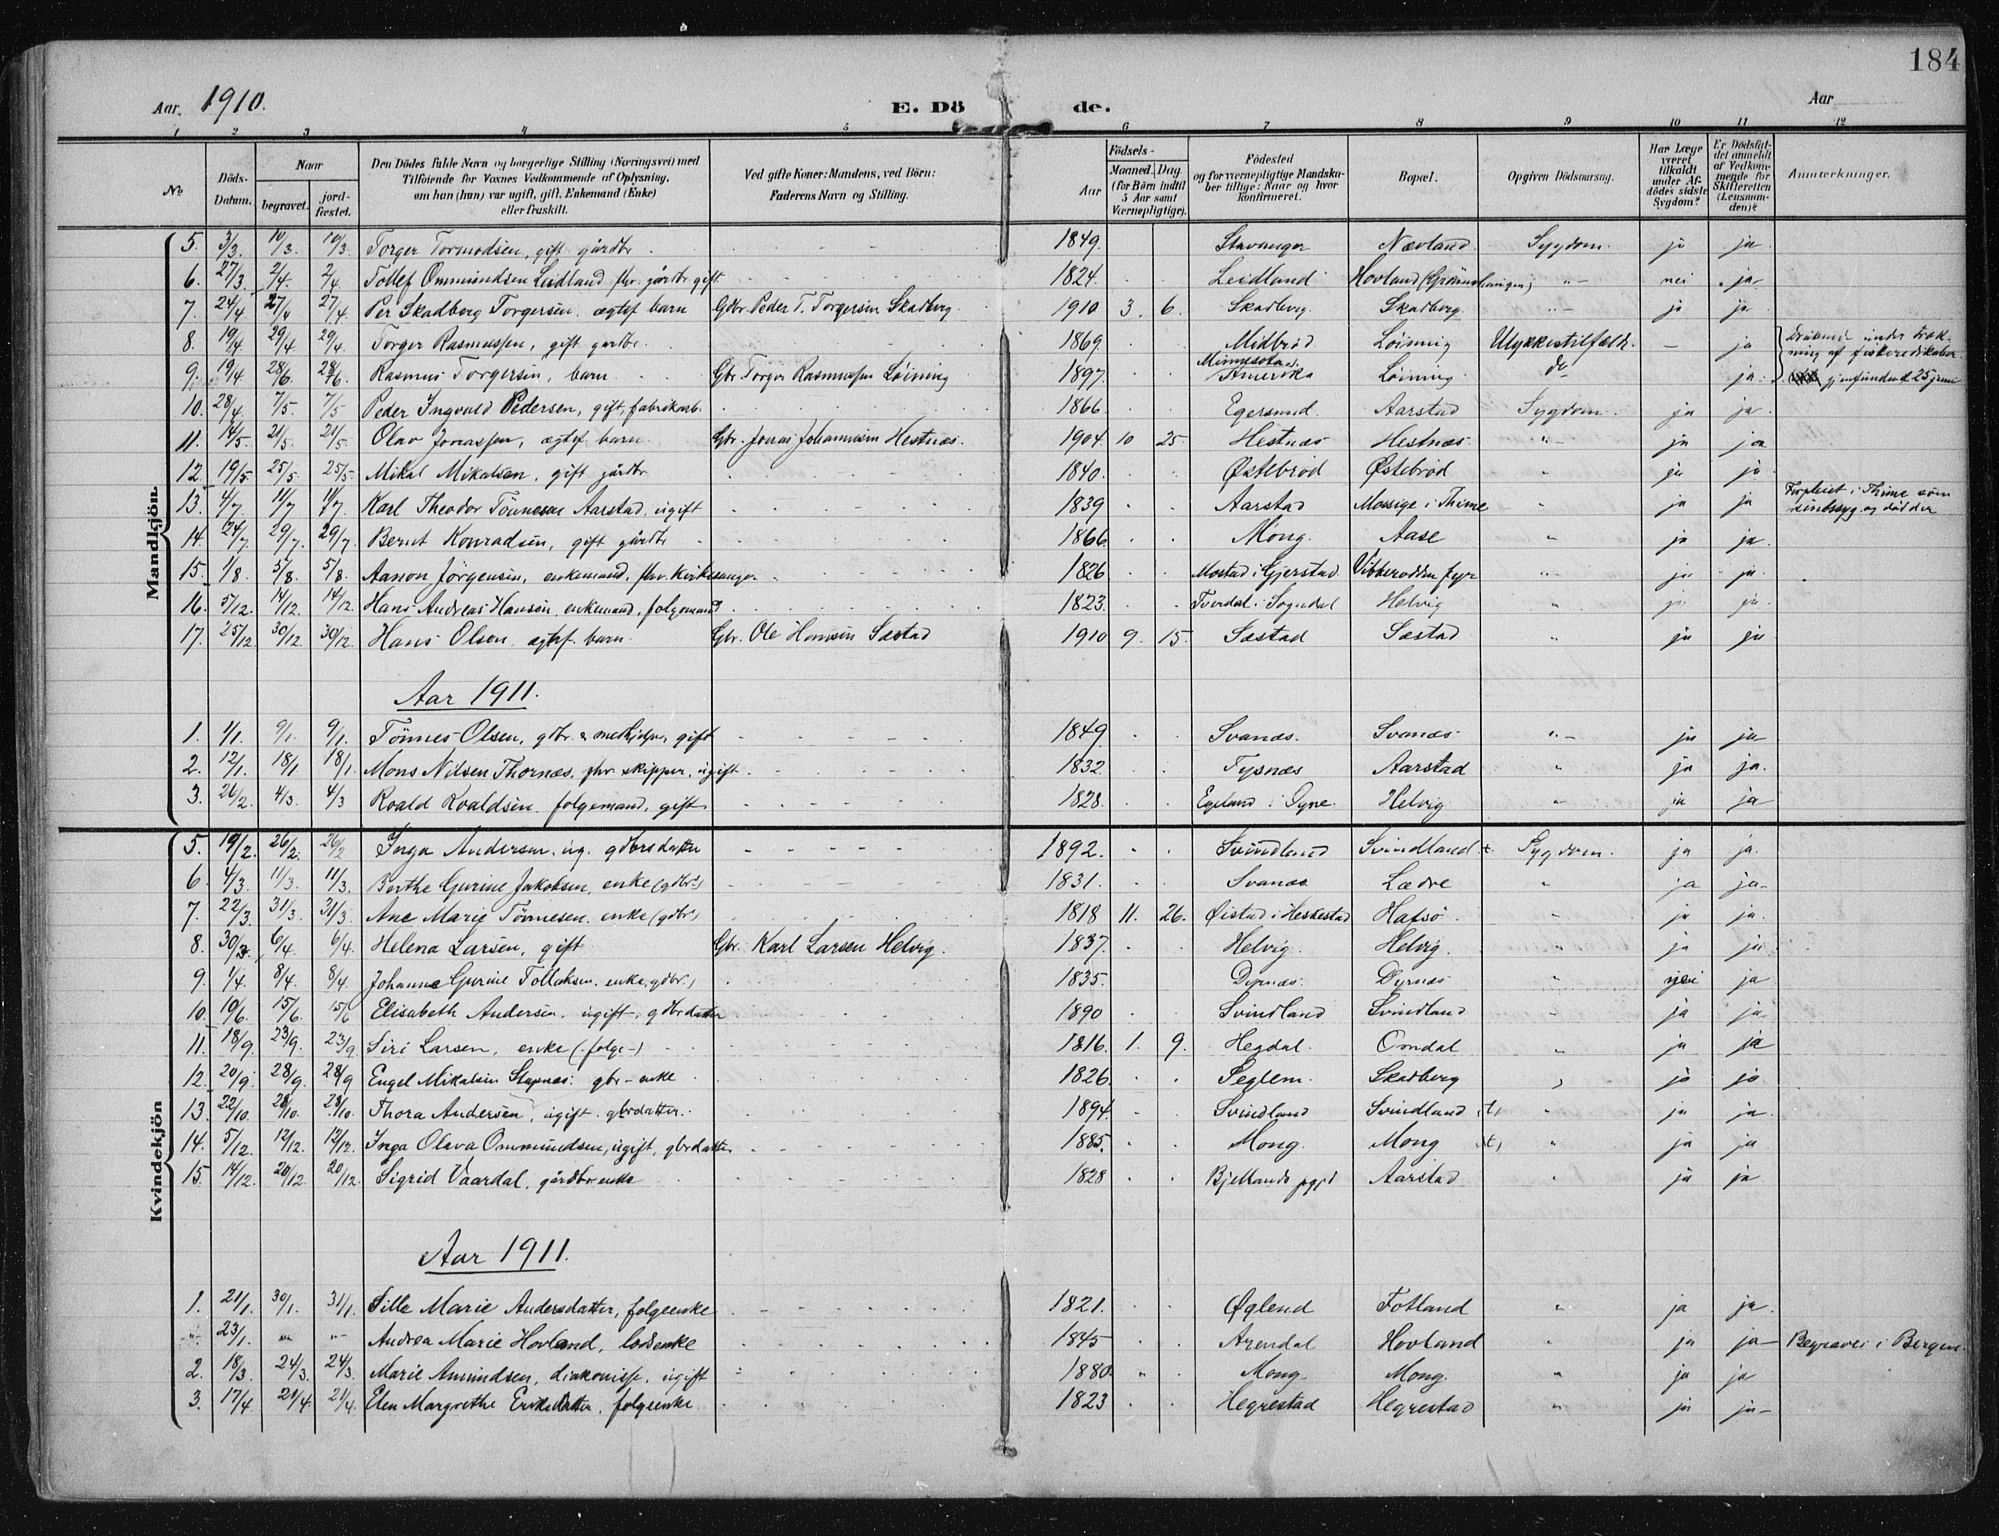 184
Aar 1910.
E. Dö de.
Aar
1 2 3 4 5 6 7 8 9 10 11 12
No.
Döds-Datum.
Naar
begravet.
jord-fæstet.
Den Dödes fulde Navn og borgerlige Stilling (Næringsvei) med
Tilföiende for Voxnes Vedkommende af Oplysning,
om han (hun) var ugift, gift, Enkemand (Enke)
eller fraskilt.
Ved gifte Koner: Mandens, ved Börn:
Faderens Navn og Stilling.
Födsels-
Aar
Maaned. Dag
(for Börn indtil
5 Aar samt
Værnepligtige).
Födested
og for værnepligtige Mandska-
ber tillige: Naar og hvor
konfirmeret.
Bopæl.
Opgiven Dödsaarsag.
Har Læge
været
tilkaldt
under Af-
dödes sidste
Sygdom?
Er Dödsfal-
det anmeldt
af Vedkom-
mende for
Skifteretten
(Lensman-
den)?
Anmærkninger.
Mandkjön.
5. 3/3 10/3 10/3 Torger Tormodsen, gift gårdbr. 1849. Stavanger Nævland Sygdom ja ja
6. 27/3 2/4 2/4 Tollef Ommundsen Leidland, fhv. gårdbr. gift 1824. Leidland Hovland nei ja
7. 24/4 27/4 27/4 Per Skadberg Torgersen, ægtef barn Gdbr. Peder T. Torgersen Skadberg 1910 3 6. Skadberg Skadberg ja ja
8. 19/4 29/4 29/4 Torger Rasmussen, gift gardbr. 1869. Midbrød Löining Ulykkestilfælde – ja Druknede under træk-
ning af fiskeredskaber
9. 19/4 28/6 28/6 Rasmus Torgersen, barn Gbr. Torger Rasmussen Löining 1897 Minnesota Amerika Löining do ja gjenfunden d 25 juni
10. 28/4 7/5 7/5 Peder Ingvald Pedersen, gift, fabrikarb. 1866. Egersund. Aarstad Sygdom ja ja
11. 14/5 21/5 21/5 Olav Jonassen, ægtef barn. Gbr. Jonas Johannesen Hestnæs. 1904 10 25. Hestnæs Hestnæs " ja ja
12. 19/5 25/5 25/5 Mikal Mikalsen, gift gårdbr 1840. Østebrød Østebrød " ja ja
13. 4/7 11/7 11/7 Karl Theodor Tönnesen Aarstad, ugift 1839 Aarstad Mossige i Thime ja ja Forpleiet i Thime som
sindssyg og død der
14. 24/7 29/7 29/7 Bernt Konradsen, gift gårdbr 1866. Mong. Aase " ja ja
15. 1/8 5/8 5/8 Aanon Jörgensen, enkemand, fhv. kirkesanger 1826 Mostad i Gjerstad Vibberodden fyr " ja ja
16. 5/12 14/12 14/12 Hans Andreas Hansen, enkemand, folgemand 1823. Tverdal i Sogndal Helvig " ja ja
17. 25/12 30/12 30/12 Hans Olsen ægtef. barn. Gbr. Ole Hansen Sæstad 1910 9. 15. Sæstad Sæstad " ja ja
Aar 1911.
1. 1/1. 9/1. 9/1. Tönnes Olsen, gbr. & medhjelper, gift 1849. Svanæs. Svanæs " ja ja
2. 12/1. 18/1 18/1 Mons Nilsen Thornæs, fhv skipper, ugift 1832. Tysnæs Aarstad " ja ja
3. 26/2 4/3 4/3 Roald Roaldsen folgemand, gift 1828. Egeland i Helvig " ja ja
Kvindekjön
5. 19/2. 26/2. 26/2 Inga Andersen, ug. gdbrsdatter 1892. Svindland Svindland t. Sygdom. ja ja
6. 4/3. 11/3. 11/3. Berthe Gurine Jakobsen, enke (gdbr.) 1831. Svanæs Lædre " ja ja
7. 22/3. 31/3. 31/3. Ane Marie Tönnesen, enke (gdbr.) 1818 11. 26. Øistad i Heskestad Hafsö " ja ja
8. 30/3. 6/4 6/4. Helena Larsen, gift Gbr. Karl Larsen Helvig. 1837. Helvig. Helvig. " ja ja
9. 1/4. 8/4. 8/4. Johanne Gurine Tollaksen, enke, gdbr.) 1835. Dyrnæs. Dyrnæs " nei ja
10. 10/6. 15/6. 15/6 Elisabeth Andersen, ugift, gdbrdatter 1890 Svindland Svindland " ja ja
11. 18/9. 23/9. 23/9 Siri Larsen, enke (folge-) 1816. 1. 9. Hegdal. Omdal " ja ja
12. 20/9. 28/9. 28/9 Engel Mikalsen Stapnæs. gbr-enke 1826. Seglem. Skadberg " ja ja
13. 22/10. 28/10. 28/10. Thora Andersen, ugift. gbrdatter. 1894. Svindland Svindland t, " ja ja
14. 5/12. 12/12. 12/12. Inga Olava Ommundsen, ugift, gbrdatter 1885. Mong. Mong t, " ja ja
15. 14/12. 20/12 20/12. Sigrid Vaardal, gårdbr.enke 1828 Bjellands pgjd Aarstad " ja ja
Aar 1911.
1. 21/1. 30/1. 31/1. Sille Marie Andersdatter, folgeenke 1821. Øglend Fotland " ja ja
" 23/1. " " Andrea Marie Hovland, lodsenke 1845 Arendal Hovland " ja ja Begravet i Bergen.
2. 18/3. 24/3. 24/3. Marie Amundsen, diakonisse, ugift 1880. Mong Mong. " ja ja
3. 17/4 21/4. 21/4. Elen Margrethe Eriksdatter, folgeenke 1823 Hegrestad Hegrestad " ja ja